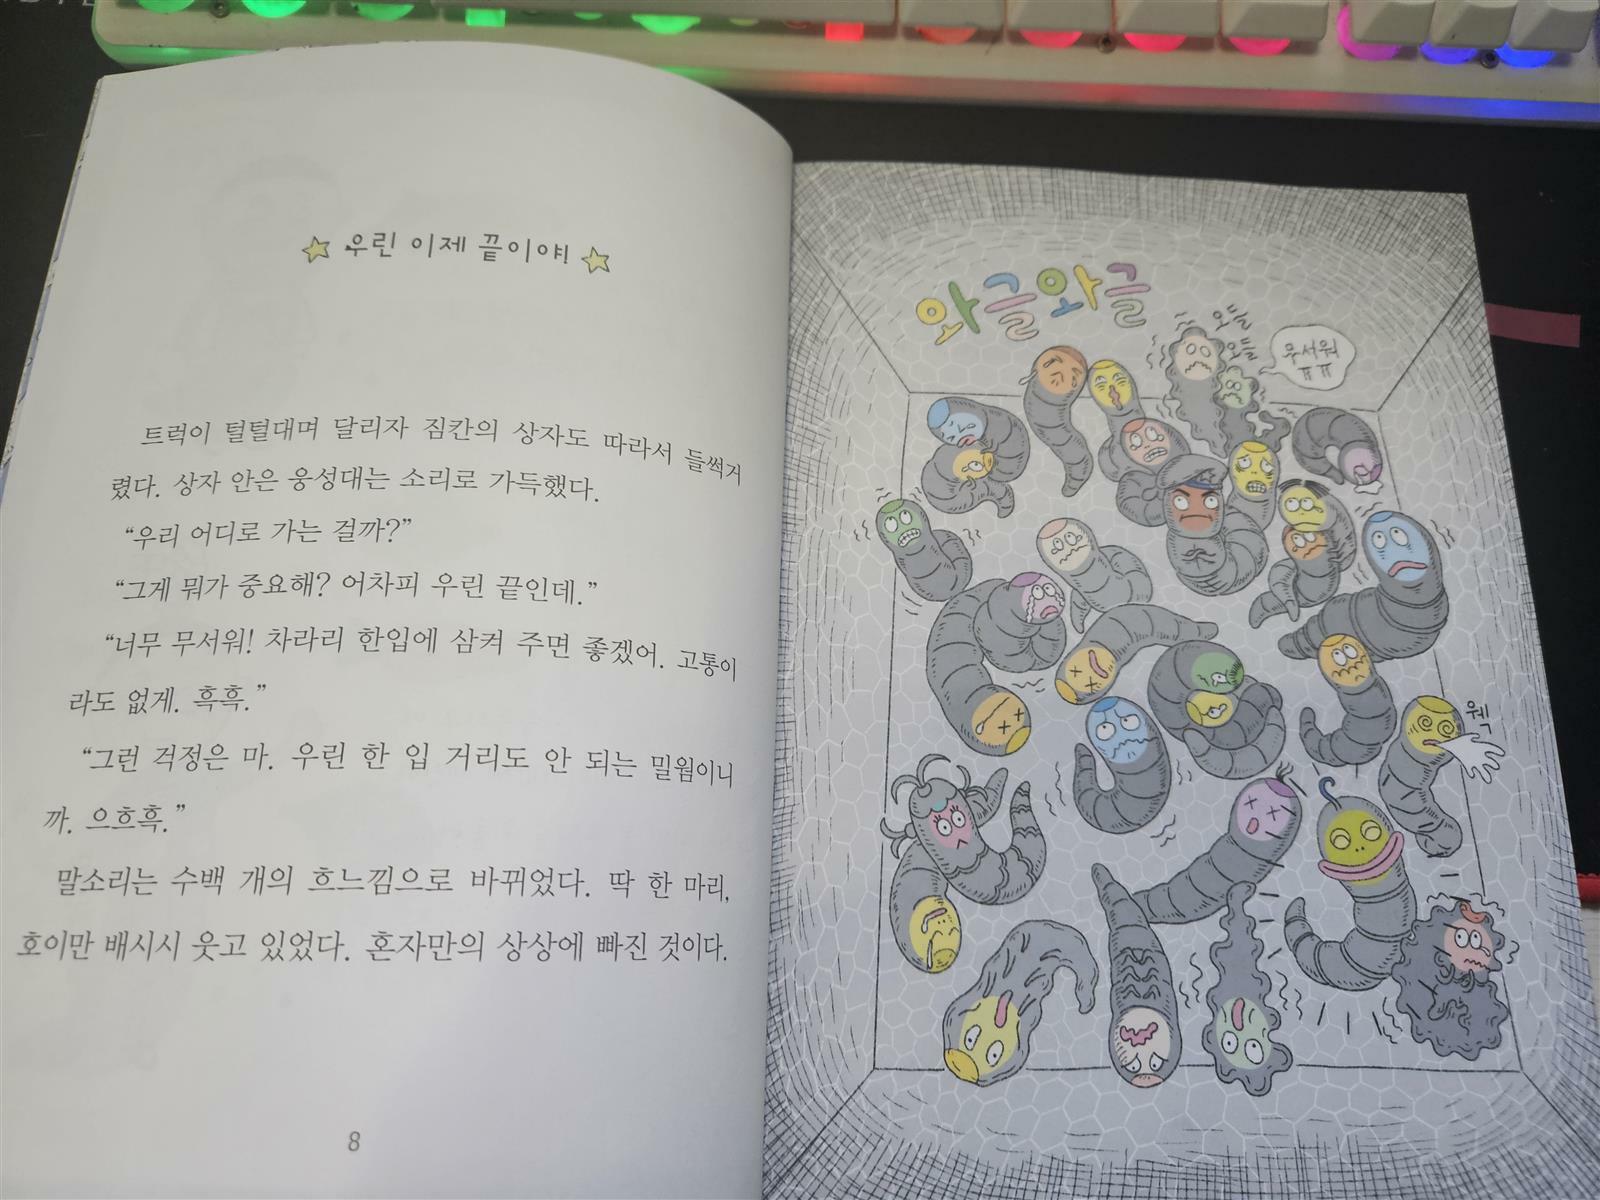 우린 이제 끝이야!
트럭이 털털대며 달리자 짐칸의 상자도 따라서 들썩거
렸다. 상자 안은 웅성대는 소리로 가득했다.
“우리 어디로 가는 걸까?”
“그게 뭐가 중요해? 어차피 우린 끝인데.”
“너무 무서워! 차라리 한입에 삼켜 주면 좋겠어. 고통이
라도 없게. 흑흑.”
“그런 걱정은 마. 우린 한 입 거리도 안 되는 밀웜이니
까. 으흐흑.”
말소리는 수백 개의 흐느낌으로 바뀌었다. 딱 한 마리,
호이만 배시시 웃고 있었다. 혼자만의 상상에 빠진 것이다.
8
와글와글
오들
오들
무서워
ㅠㅠ
웩